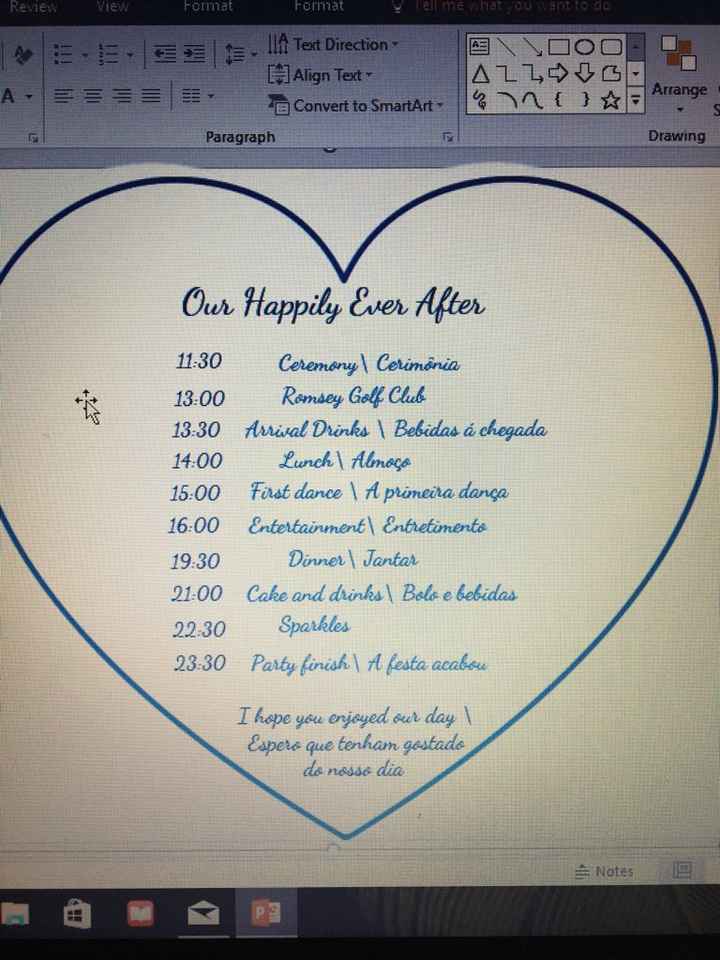 Review View Format Format Tell me what you want to do
Text Direction
Align Text
Convert to SmartArt
A
Arrange
Paragraph
Drawing
Our Happily Ever After
11:30 Ceremony \ Cerimônia
13:00 Romsey Golf Club
13:30 Arrival Drinks \ Bebidas á chegada
14:00 Lunch \ Almoço
15:00 First dance \ A primeira dança
16:00 Entertainment \ Entretimento
19:30 Dinner \ Jantar
21:00 Cake and drinks \ Bolo e bebidas
22:30 Sparkles
23:30 Party finish \ A festa acabou
I hope you enjoyed our day \
Espero que tenham gostado
do nosso dia
Notes